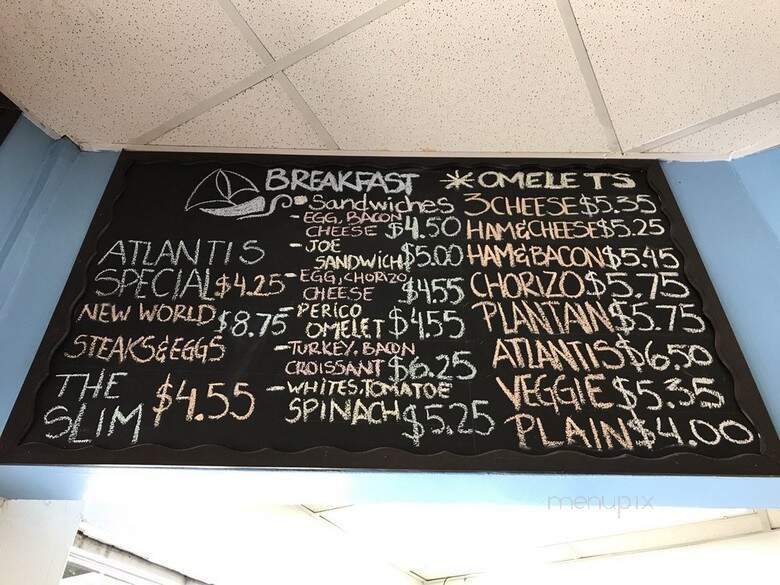 BREAKFAST
Sandwiches
- EGG, BACON
CHEESE $4.50
- JOE
SANDWICH $5.00
- EGG, CHORIZO
CHEESE $4.55
- PERICO
OMELET $4.55
- TURKEY, BACON
CROISSANT $6.25
- WHITES, TOMATOE
SPINACH $5.25
ATLANTIS
SPECIAL $4.25
NEW WORLD $8.75
STEAKS & EGGS
THE
SLIM $4.55
* OMELETS
3 CHEESE $5.35
HAM & CHEESE $5.25
HAM & BACON $5.45
CHORIZO $5.75
PLANTAIN $5.75
ATLANTIS $6.50
VEGGIE $5.35
PLAIN $4.00
menupix